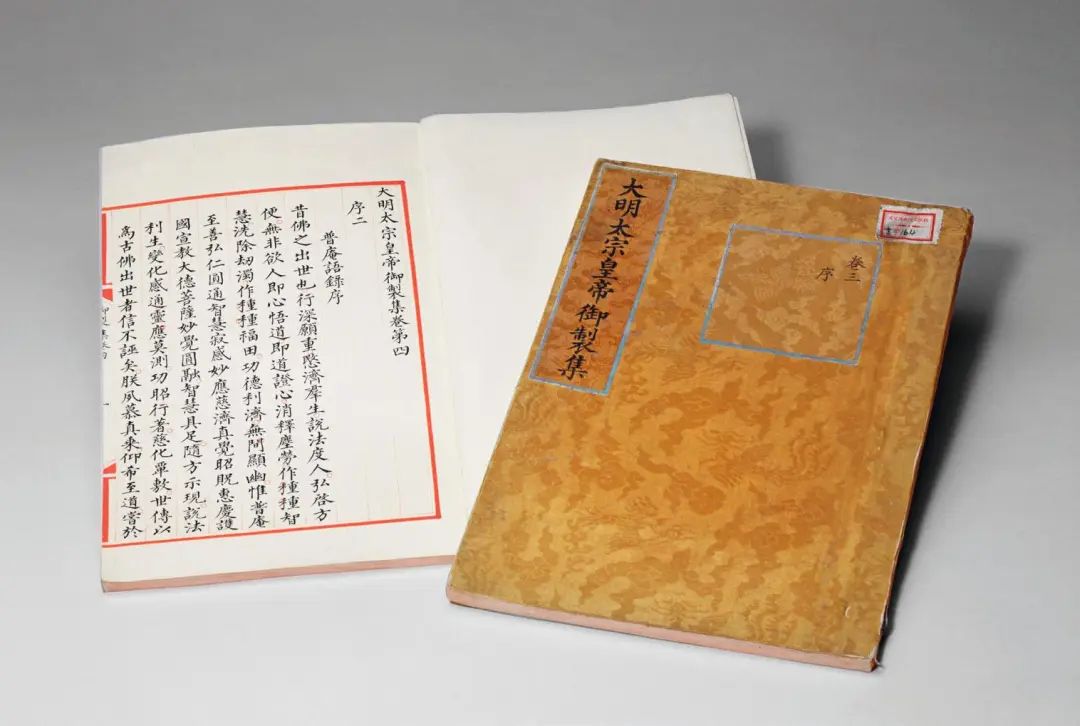 大明太宗皇帝御製集卷第四
序二
普庵語錄序
昔佛之出世也行深願重愍濟羣生說法度人弘啓方
便無非欲人即心悟道即道證心消釋塵勞作種種智
慧洗除劫濁作種種福田功德利濟無間顯幽惟普庵
至善弘仁圓通智慧寂感妙應慈濟真覺昭貺惠慶護
國宣教大德菩薩妙覺圓融智慧具足隨方示現說法
利生變化感通靈應莫測功昭行著慈化覃敷世傳以
為古佛出世者信不誣矣朕夙慕真乘仰希至道嘗於
大明太宗皇帝御製集
卷三
序
164